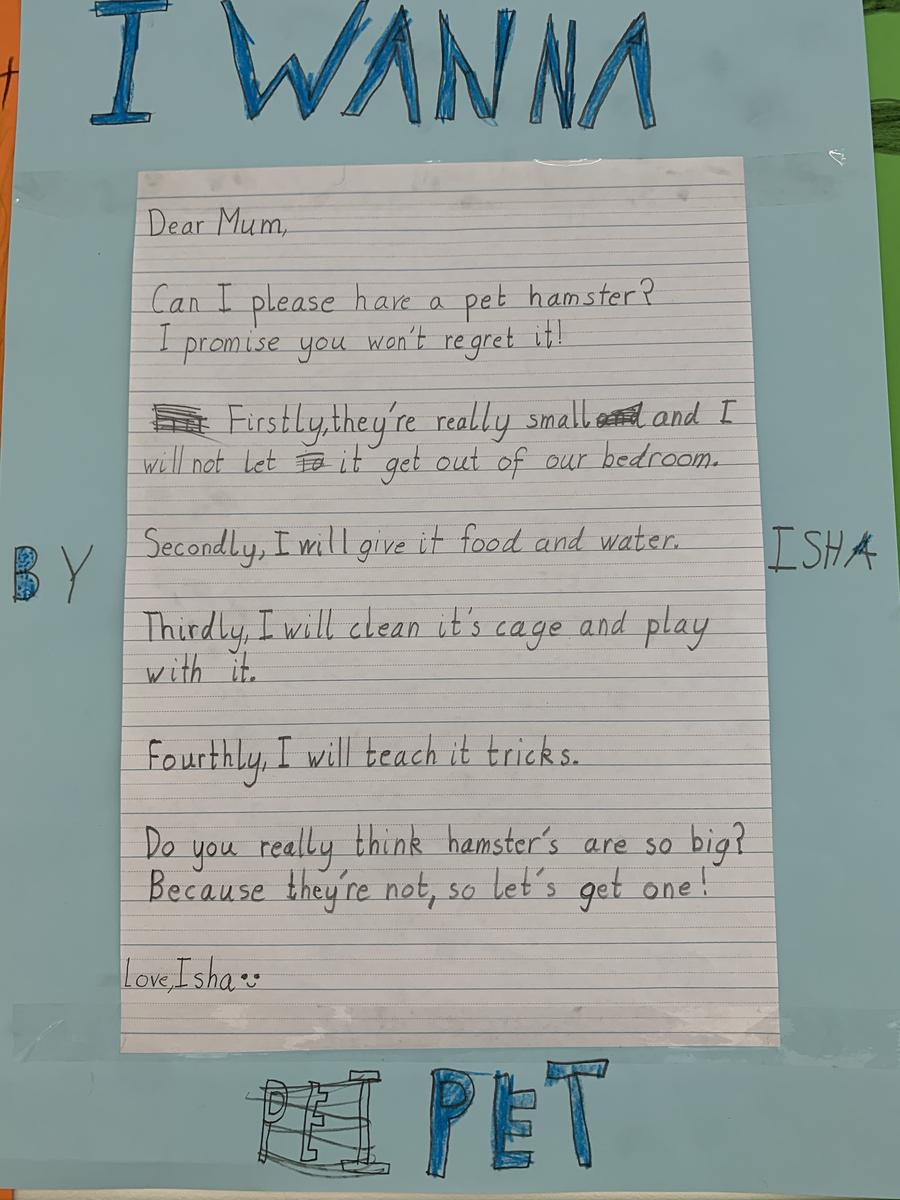 I WANNA
Dear Mum,
Can I please have a pet hamster?
I promise you won't regret it!
Firstly, they're really small and and I
will not let to it get out of our bedroom.
Secondly, I will give it food and water.
BY
ISHA
Thirdly, I will clean it's cage and play
with it.
Fourthly, I will teach it tricks.
Do you really think hamster's are so big?
Because they're not, so let's get one!
Love, Isha
PET PET